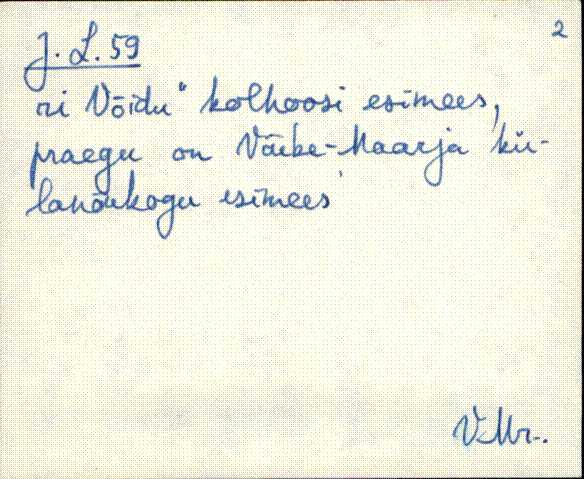 2
J. L. 59
ri Võidu" kolhoosi esimees,
praegu on Väike-Maarja kü-
lanõukogu esimees
V.Mr.